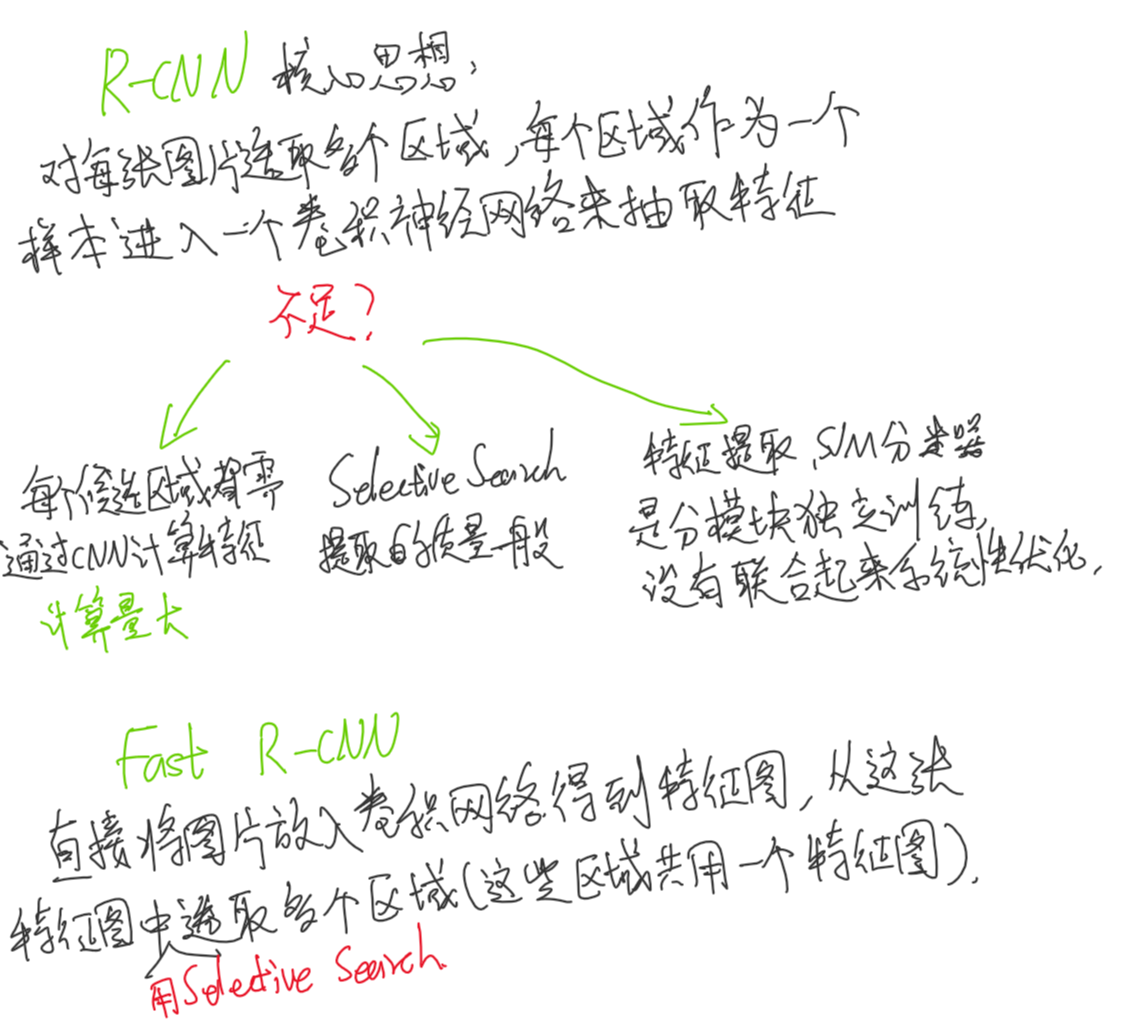 R-CNN 核心思想,
对每张图片选取多个区域,每个区域作为一个
样本进入一个卷积神经网络来抽取特征
不足?
每个候选区域都需
通过CNN计算特征
计算量大
Selective Search
提取的质量一般
特征提取、SVM分类器
是分模块独立训练,
没有联合起来系统性优化,
Fast R-CNN
直接将图片放入卷积网络得到特征图,从这张
特征图中选取多个区域(这些区域共用一个特征图).
用Selective Search